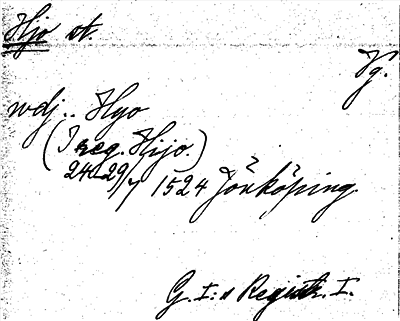 Hjo st.
Vg.
wdj.. Hyo
(I reg. Hijo.)
24-29/7 1524 Jönköping.
G. I:s Registr. I.